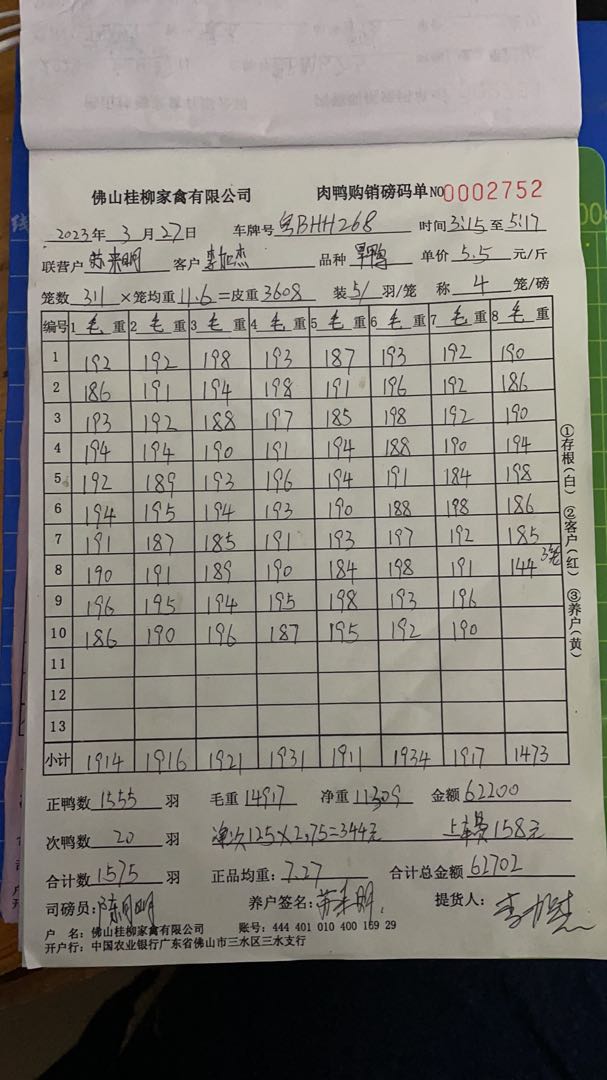 佛山桂柳家禽有限公司 肉鸭购销磅码单 NO 0002752
2023年 3 月 27日 车牌号 粤BHH268 时间 3:15 至 5:17
联营户 苏来明 客户 李旭杰 品种 旱鸭 单价 5.5 元/斤
笼数 311 ×笼均重 11.6 =皮重 3608 装 5/ 羽/笼 称 4 笼/磅
编号 1 毛 重 2 毛 重 3 毛 重 4 毛 重 5 毛 重 6 毛 重 7 毛 重 8 毛 重
1 192 192 198 193 187 193 192 190
2 186 191 194 198 191 196 192 186
3 193 192 188 197 185 198 192 190
4 194 194 190 191 194 188 190 194
5 192 189 193 196 194 191 184 198
6 194 195 194 193 190 188 198 186
7 191 187 185 191 193 197 192 185
8 190 191 189 190 184 198 191 144 3笼
9 196 195 194 195 198 193 196
10 186 190 196 187 195 192 190
11
12
13
小计 1914 1916 1921 1931 1911 1934 1917 1473
①存根(白) ②客户(红) ③养户(黄)
正鸭数 1555 羽 毛重 14917 净重 11309 金额 62200
次鸭数 20 羽 净次125×2.75=344元 上车费158元
合计数 1575 羽 正品均重: 7.27 合计总金额 62702
司磅员: 陈明 养户签名: 苏来明 提货人: 李旭杰
户 名: 佛山桂柳家禽有限公司 账号: 444 401 010 400 169 29
开户行: 中国农业银行广东省佛山市三水区三水支行